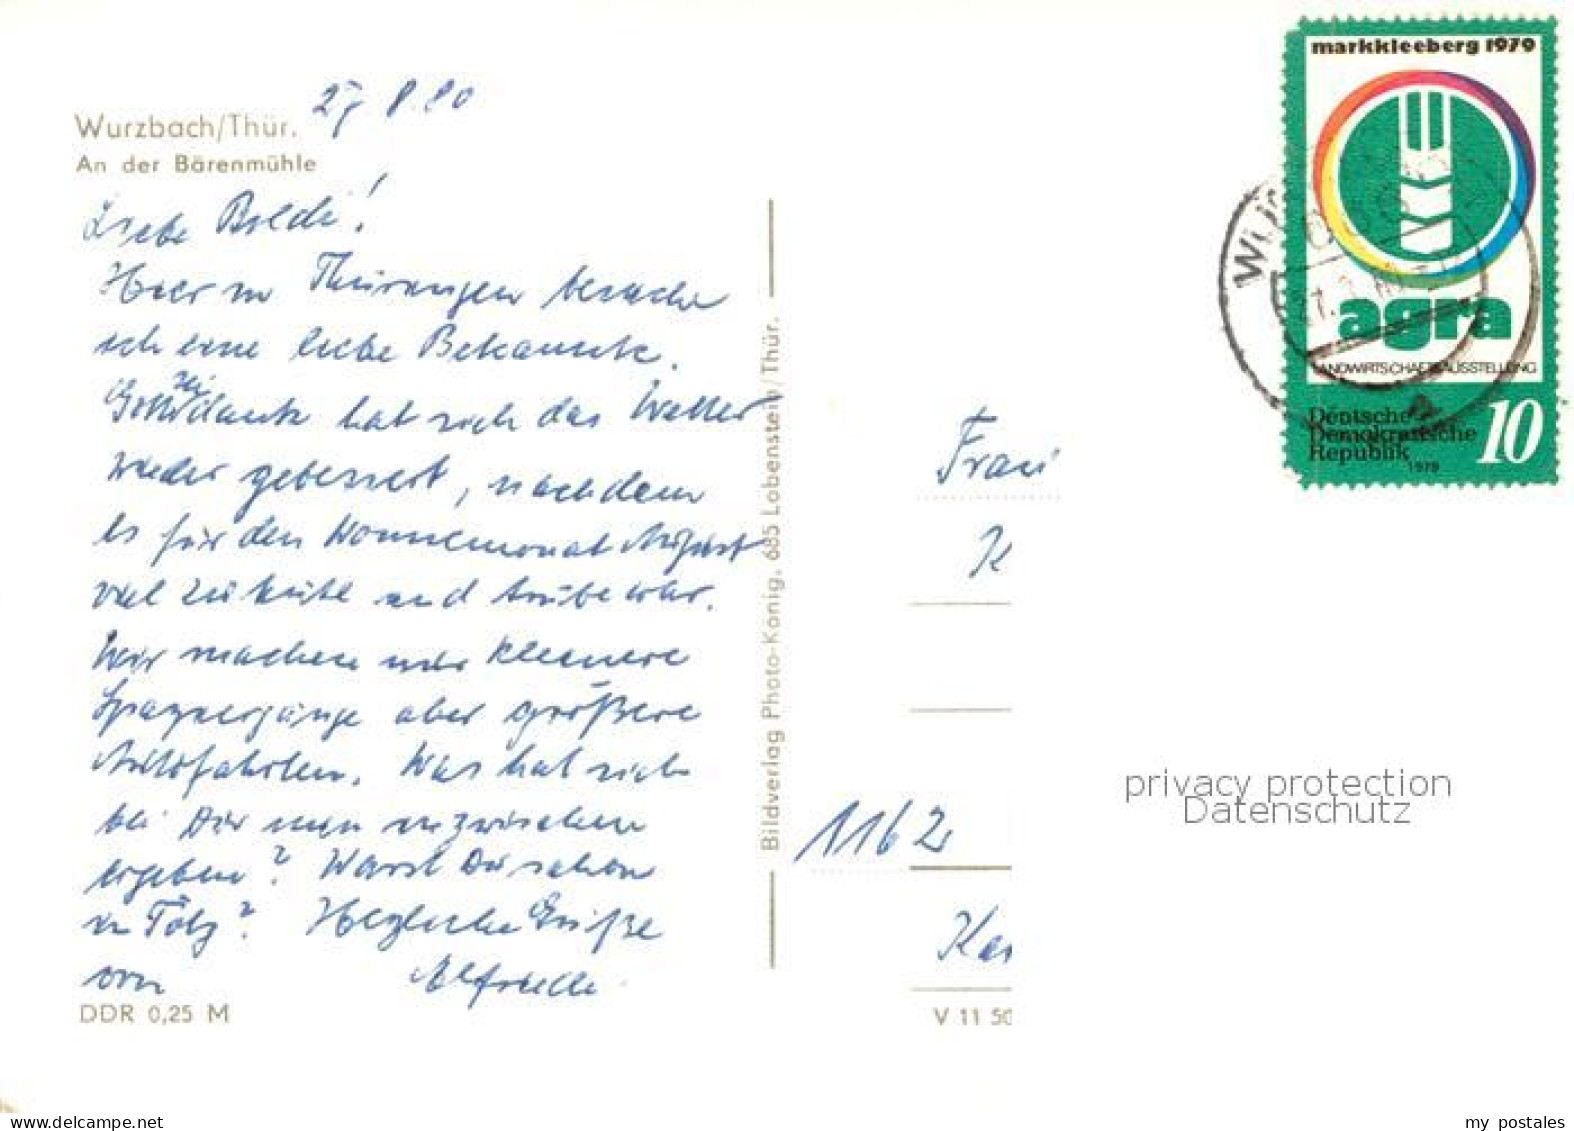 markkleeberg 1979
27 8.80
Wurzbach/Thür.
An der Bärenmühle
Liebe Poldi!
Hier in Thüringen besuche
ich eine liebe Bekannte.
Gott sei dank hat sich das Wetter
wieder gebessert, nachdem
es für den Wonnemonat August
viel zu kühl und trübe war.
Wir machen nur kleinere
Spaziergänge aber größere
Autofahrten. Was hat sich
bei Dir nun inzwischen
ergeben? Warst Du schon
in Tölz? Herzliche Grüße
von Elfriede
DDR 0,25 M
Bildverlag Photo-König, 685 Lobenstein/Thür.
agra
LANDWIRTSCHAFTSAUSSTELLUNG
Deutsche
Demokratische
Republik
1979
10
WU
Frau
K
1162
Kar
V 11 50
privacy protection
Datenschutz
my postales
www.delcampe.net